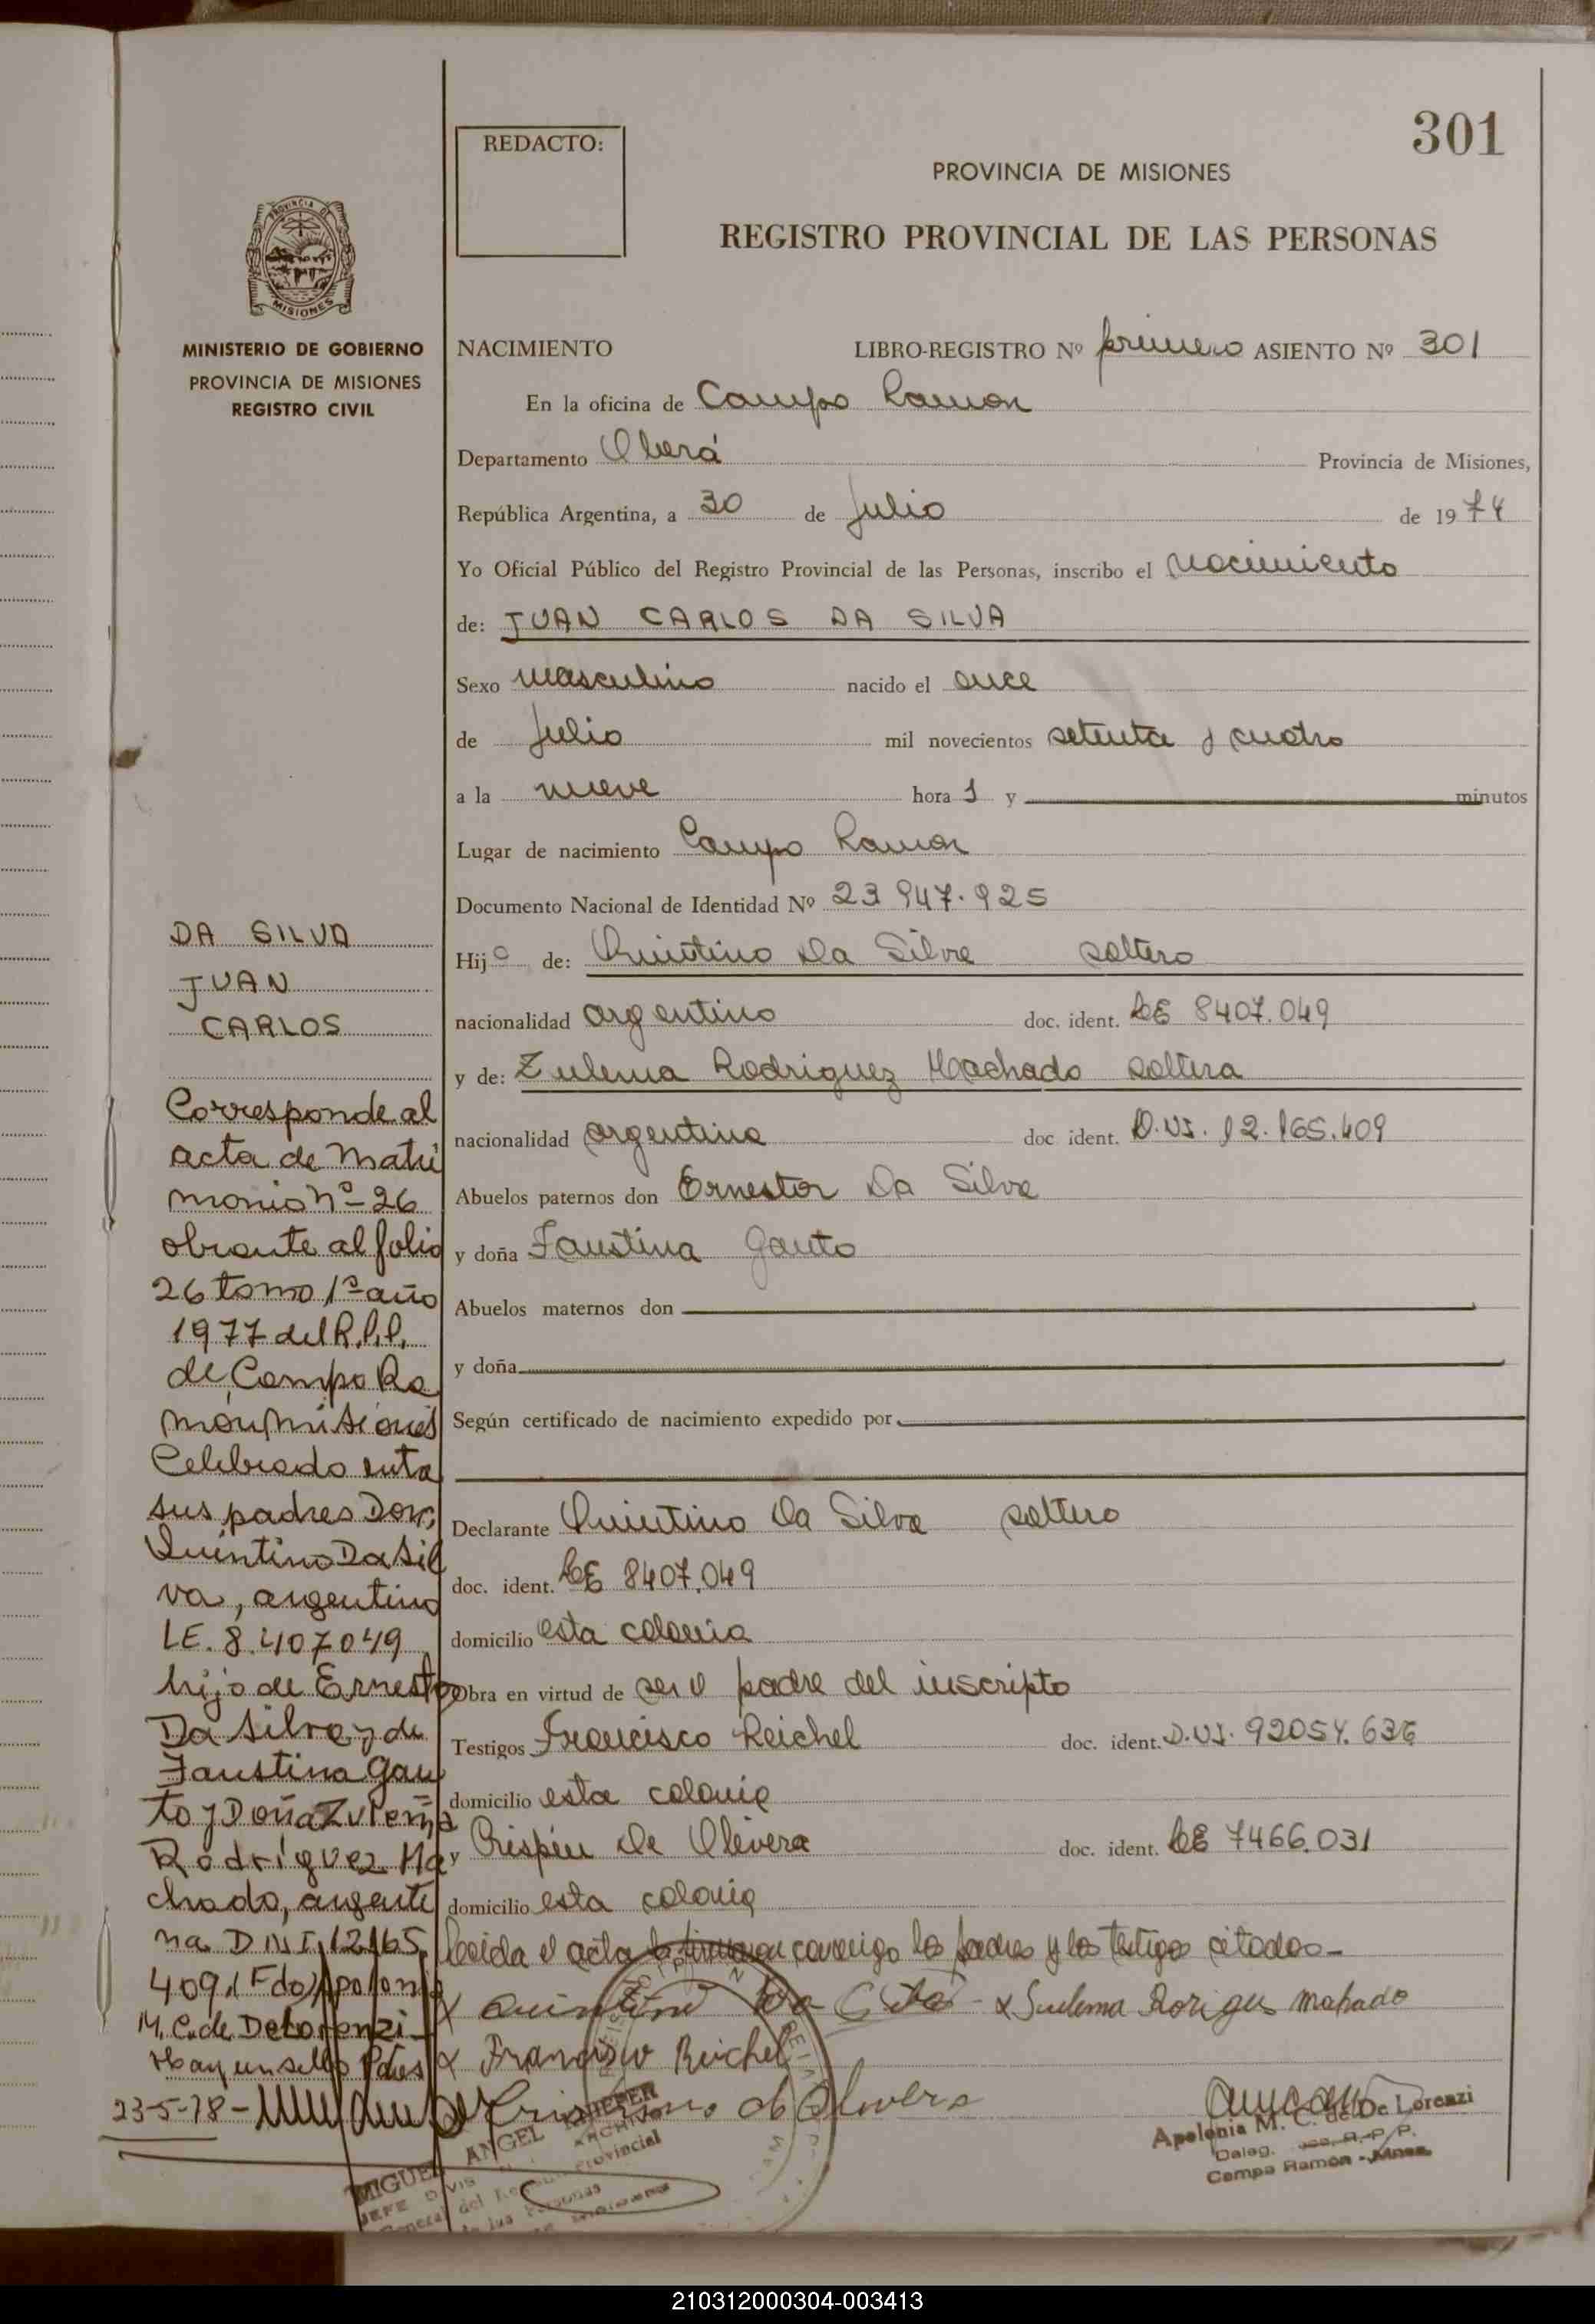 301
REDACTO:
PROVINCIA DE MISIONES
REGISTRO PROVINCIAL DE LAS PERSONAS
PROVINCIA DE
MISIONES
MINISTERIO DE GOBIERNO
PROVINCIA DE MISIONES
REGISTRO CIVIL
NACIMIENTO LIBRO-REGISTRO Nº primero ASIENTO Nº 301
En la oficina de Campo Ramon
Departamento Oberá Provincia de Misiones,
República Argentina, a 30 de Julio de 1974
Yo Oficial Público del Registro Provincial de las Personas, inscribo el Nacimiento
de: JUAN CARLOS DA SILVA
Sexo masculino nacido el once
de Julio mil novecientos setenta y cuatro
a la nueve hora s y minutos
Lugar de nacimiento Campo Ramon
Documento Nacional de Identidad Nº 23 947.925
Hijo de: Quintino Da Silva soltero
nacionalidad argentino doc. ident. LE 8407.049
y de: Zulema Rodriguez Machado soltera
nacionalidad argentina doc ident. D.NI. 12.165.409
Abuelos paternos don Ernestor Da Silva
y doña Faustina Gauto
Abuelos maternos don
y doña
Según certificado de nacimiento expedido por
Declarante Quintino Da Silva soltero
doc. ident. LE 8407.049
domicilio esta colonia
Obra en virtud de ser el padre del inscripto
Testigos Francisco Reichel doc. ident. D.NI. 92054.636
domicilio esta colonia
y Crispin De Olivera doc. ident. LE 7466.031
domicilio esta colonia
Leida el acta la firman conmigo los padres y los testigos citados-
x Quintino Da Silva - x Sulema Roriges Mahado
x Francisco Reichel
x de Olivera
Apolonia M. C. de De Lorenzi
Deleg. R. P. P.
Campo Ramon - Mnes.
DA SILVA
JUAN
CARLOS
Corresponde al
acta de Matri
monio Nº-26
obrante al folio
26 tomo 1º año
1977 del R.P.P.
de Campo Ra
món, Misiones
Celebrado entre
sus padres Don,
Quintino Da Sil
va, argentino
LE. 8.407049
hijo de Ernesto
Da Silva y de
Faustina Gau
to y Doña Zulema
Rodríguez Ma
chado, argenti
na D NI 12.165.
409, (Fdo) Apolonia
M. C. de De Lorenzi-
Hay un sello Pdas
23-5-78-
MIGUEL ANGEL
JEFE DIVIS. ARCHIVO
General del Registro Provincial
de las Personas
210312000304-003413